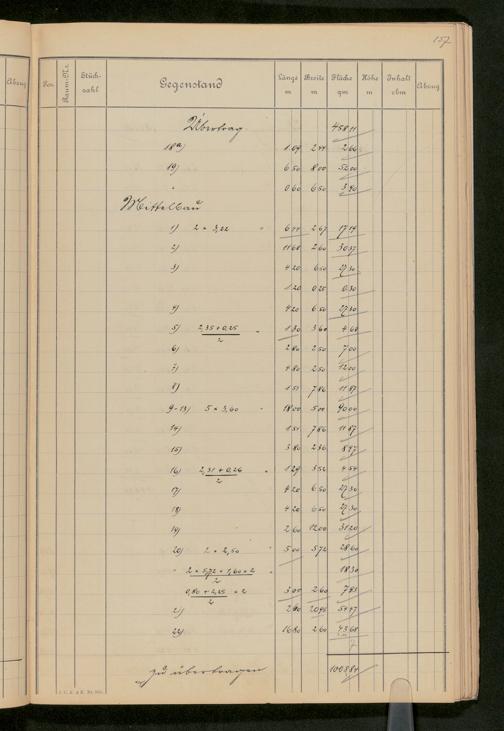 157
Abzug Pos. Raum-Nr. Stückzahl Gegenstand Länge m Breite m Fläche qm Höhe m Inhalt cbm Abzug
Übertrag 458 11
18a) 1 09 2 44 2 66
19) 6 50 8 00 52 00
" 0 60 6 50 3 90
Mittelbau
1) 2 × 3,22 " 6 44 2 67 17 19
2) 11 68 2 60 30 37
3) 4 20 6 50 27 30
1 20 0 25 0 30
4) 4 20 6 50 27 30
5) 2,35 + 0,25 / 2 " 1 30 3 60 4 68
6) 2 80 2 50 7 00
7) 4 80 2 50 12 00
8) 1 51 7 86 11 87
9-13) 5 × 3,60 " 18 00 5 00 90 00
14) 1 51 7 86 11 87
15) 3 80 2 36 8 97
16) 2,31 + 0,26 / 2 " 1 29 3 52 4 54
17) 4 20 6 50 27 30
18) 4 20 6 50 27 30
19) 2 60 12 00 31 20
20) 2 × 2,50 " 5 00 5 72 28 60
" 2 × 5,72 + 1,60 × 2 / 2 " 18 30
0,80 + 2,25 / 2 × 2 3 05 2 60 7 93
21) 20 45 54 47
22) 16 80 2 60 43 68
zu übertragen 1008 84